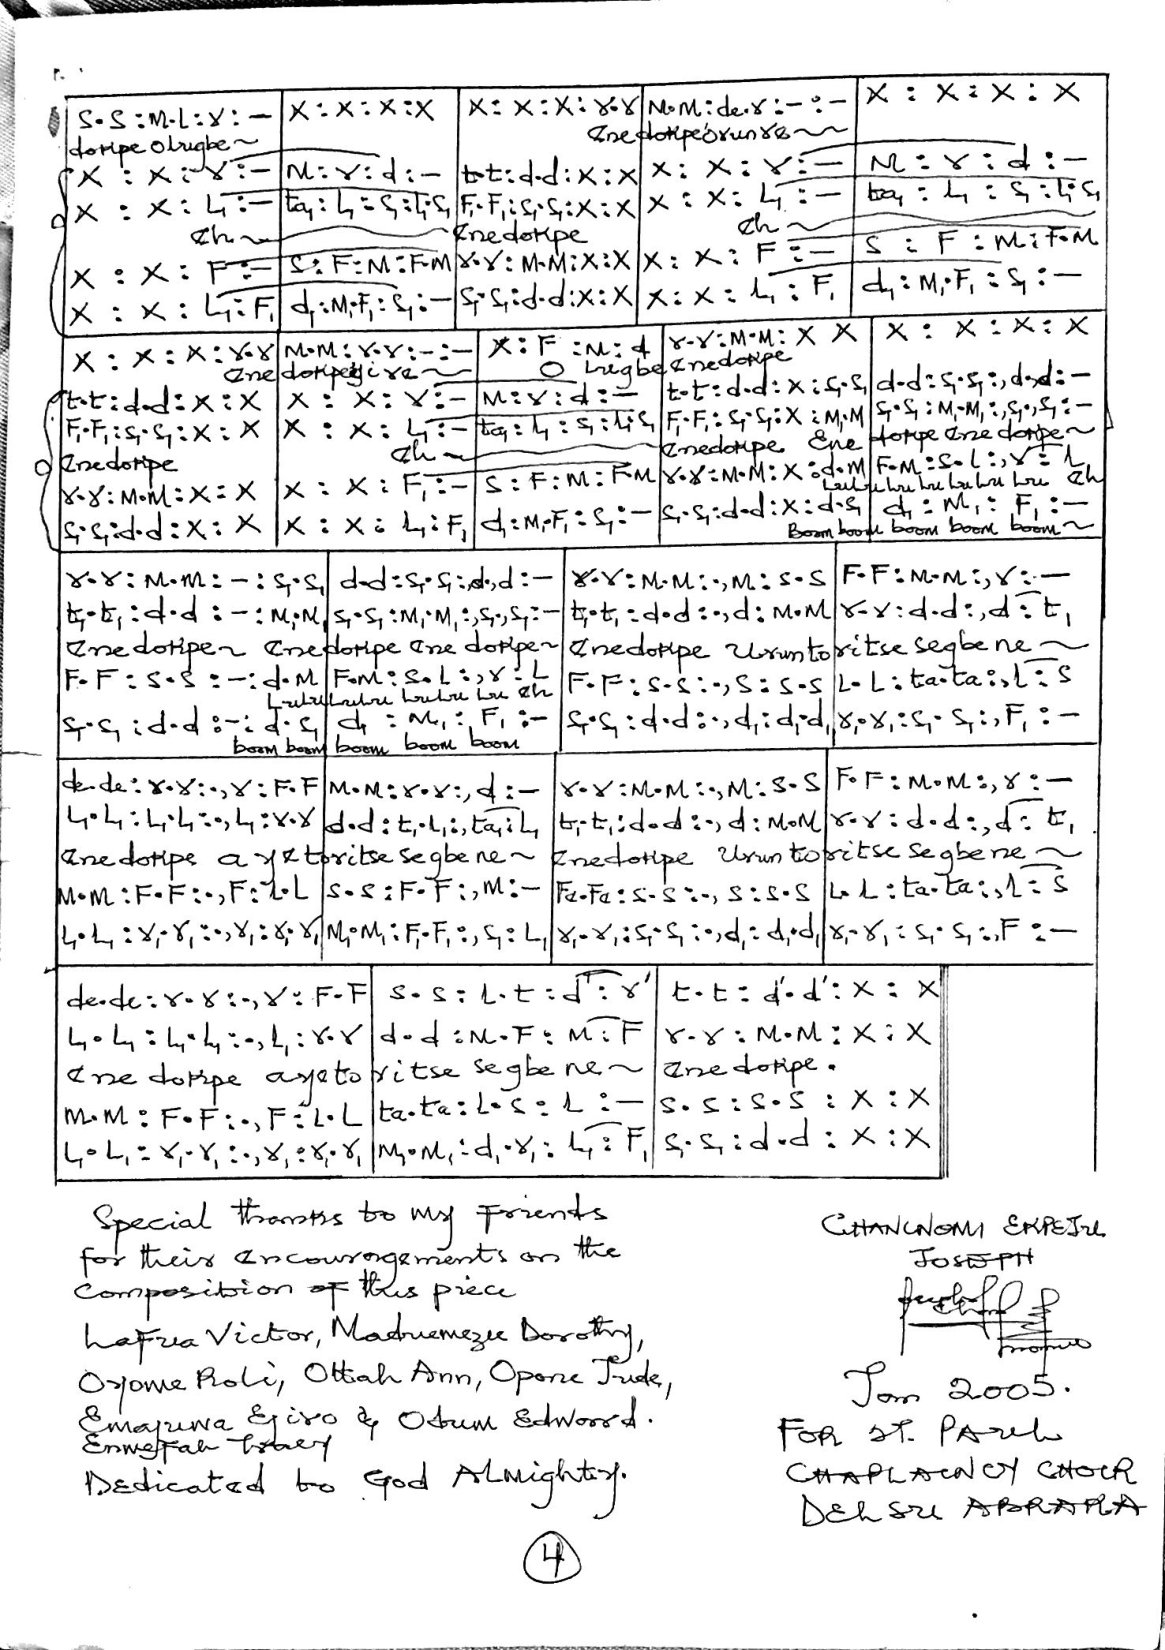 S.S :M.L:r : — | X : X : X : X | X : X : X : r.r | M.M : de.r : — : — | X : X : X : X
doripe Olugbe~ Ene doripe órunre~
X : X : r : — | M : r : d : — | t.t : d.d : X : X | X : X : r : — | M : r : d : —
X : X : L₁ : — | ta₁ : L₁ : S₁ : L₁.S₁ | F₁.F₁ : S₁.S₁ : X : X | X : X : L₁ : — | ta₁ : L₁ : S₁ : L₁.S₁
Eh~ Ene doripe Eh~
X : X : F : — | S : F : M : F.M | r.r : M.M : X : X | X : X : F : — | S : F : M : F.M
X : X : L₁ : F₁ | d₁ : M₁.F₁ : S₁ : — | S₁.S₁ : d.d : X : X | X : X : L₁ : F₁ | d₁ : M₁.F₁ : S₁ : —
X : X : X : r.r | M.M : r.r : — : — | X : F : M : d | r.r : M.M : X X | X : X : X : X
Ene doripe yire~ O lugbe Ene doripe
t.t : d.d : X : X | X : X : r : — | M : r : d : — | t.t : d.d : X : S₁.S₁ | d.d : S₁.S₁ :, d.,d : —
F₁.F₁ : S₁.S₁ : X : X | X : X : L₁ : — | ta₁ : L₁ : S₁ : L₁.S₁ | F₁.F₁ : S₁.S₁ : X : M₁.M₁ | S₁.S₁ : M₁.M₁ :, S₁.,S₁ : —
Ene doripe Eh~ Ene doripe Ene doripe Ene doripe~
r.r : M.M : X : X | X : X : F₁ : — | S : F : M : F.M | r.r : M.M : X : d.M | F.M : S.L :, r : L
Lulu Lulu Lulu Lu Eh
S₁.S₁ : d.d : X : X | X : X : L₁ : F₁ | d₁ : M₁.F₁ : S₁ : — | S₁.S₁ : d.d : X : d.S₁ | d₁ : M₁ : F₁ : —
Boom boom boom boom boom~
r.r : M.M : — : S₁.S₁ | d.d : S₁.S₁ : d.,d : — | r.r : M.M : ., M : S.S | F.F : M.M :, r : —
t₁.t₁ : d.d : — : M₁.M₁ | S₁.S₁ : M₁.M₁ :, S₁.,S₁ : — | t₁.t₁ : d.d : ., d : M.M | r.r : d.d :, d : t₁
Ene doripe~ Ene doripe Ene doripe~ Ene doripe Urunto ritse segbe ne~
F.F : S.S : — : d.M | F.M : S.L :, r : L | F.F : S.S : ., S : S.S | L.L : ta.ta :, L : S
Lulu Lulu Lulu Lu Eh
S₁.S₁ : d.d : — : d.S₁ | d₁ : M₁ : F₁ : — | S₁.S₁ : d.d : ., d₁ : d₁.d₁ | r₁.r₁ : S₁.S₁ :, F₁ : —
boom boom boom boom boom
de.de : r.r : ., r : F.F | M.M : r.r :, d : — | r.r : M.M : ., M : S.S | F.F : M.M :, r : —
L₁.L₁ : L₁.L₁ : ., L₁ : r.r | d.d : t₁.L₁ :, ta₁ : L₁ | t₁.t₁ : d.d : ., d : M.M | r.r : d.d :, d : t₁
Ene doripe ayeto ritse segbe ne~ Ene doripe Urunto ritse segbe ne~
M.M : F.F : ., F : L.L | S.S : F.F :, M : — | Fa.Fa : S.S : ., S : S.S | L.L : ta.ta :, L : S
L₁.L₁ : r₁.r₁ : ., r₁ : r₁.r₁ | M₁.M₁ : F₁.F₁ :, S₁ : L₁ | r₁.r₁ : S₁.S₁ : ., d₁ : d₁.d₁ | r₁.r₁ : S₁.S₁ :, F : —
de.de : r.r : ., r : F.F | S.S : L.t : d' : r' | t.t : d'.d' : X : X
L₁.L₁ : L₁.L₁ : ., L₁ : r.r | d.d : M.F : M : F | r.r : M.M : X : X
Ene doripe ayeto ritse segbe ne~ Ene doripe.
M.M : F.F : ., F : L.L | ta.ta : L.S : L : — | S.S : S.S : X : X
L₁.L₁ : r₁.r₁ : ., r₁ : r₁.r₁ | M₁.M₁ : d₁.r₁ : L₁ : F₁ | S₁.S₁ : d.d : X : X
Special thanks to my Friends
for their encouragements on the
Composition of this piece
Lafua Victor, Maduemezue Dorothy,
Oyome Roli, Ottah Ann, Opone Jude,
Emajuwa Ejiro & Odum Edward.
Dedicated to God Almighty.
EKPEJU
JOSEPH
Jan 2005.
FOR ST. PAUL
CHAPLAINCY CHOIR
DELSU ABRAKA
4